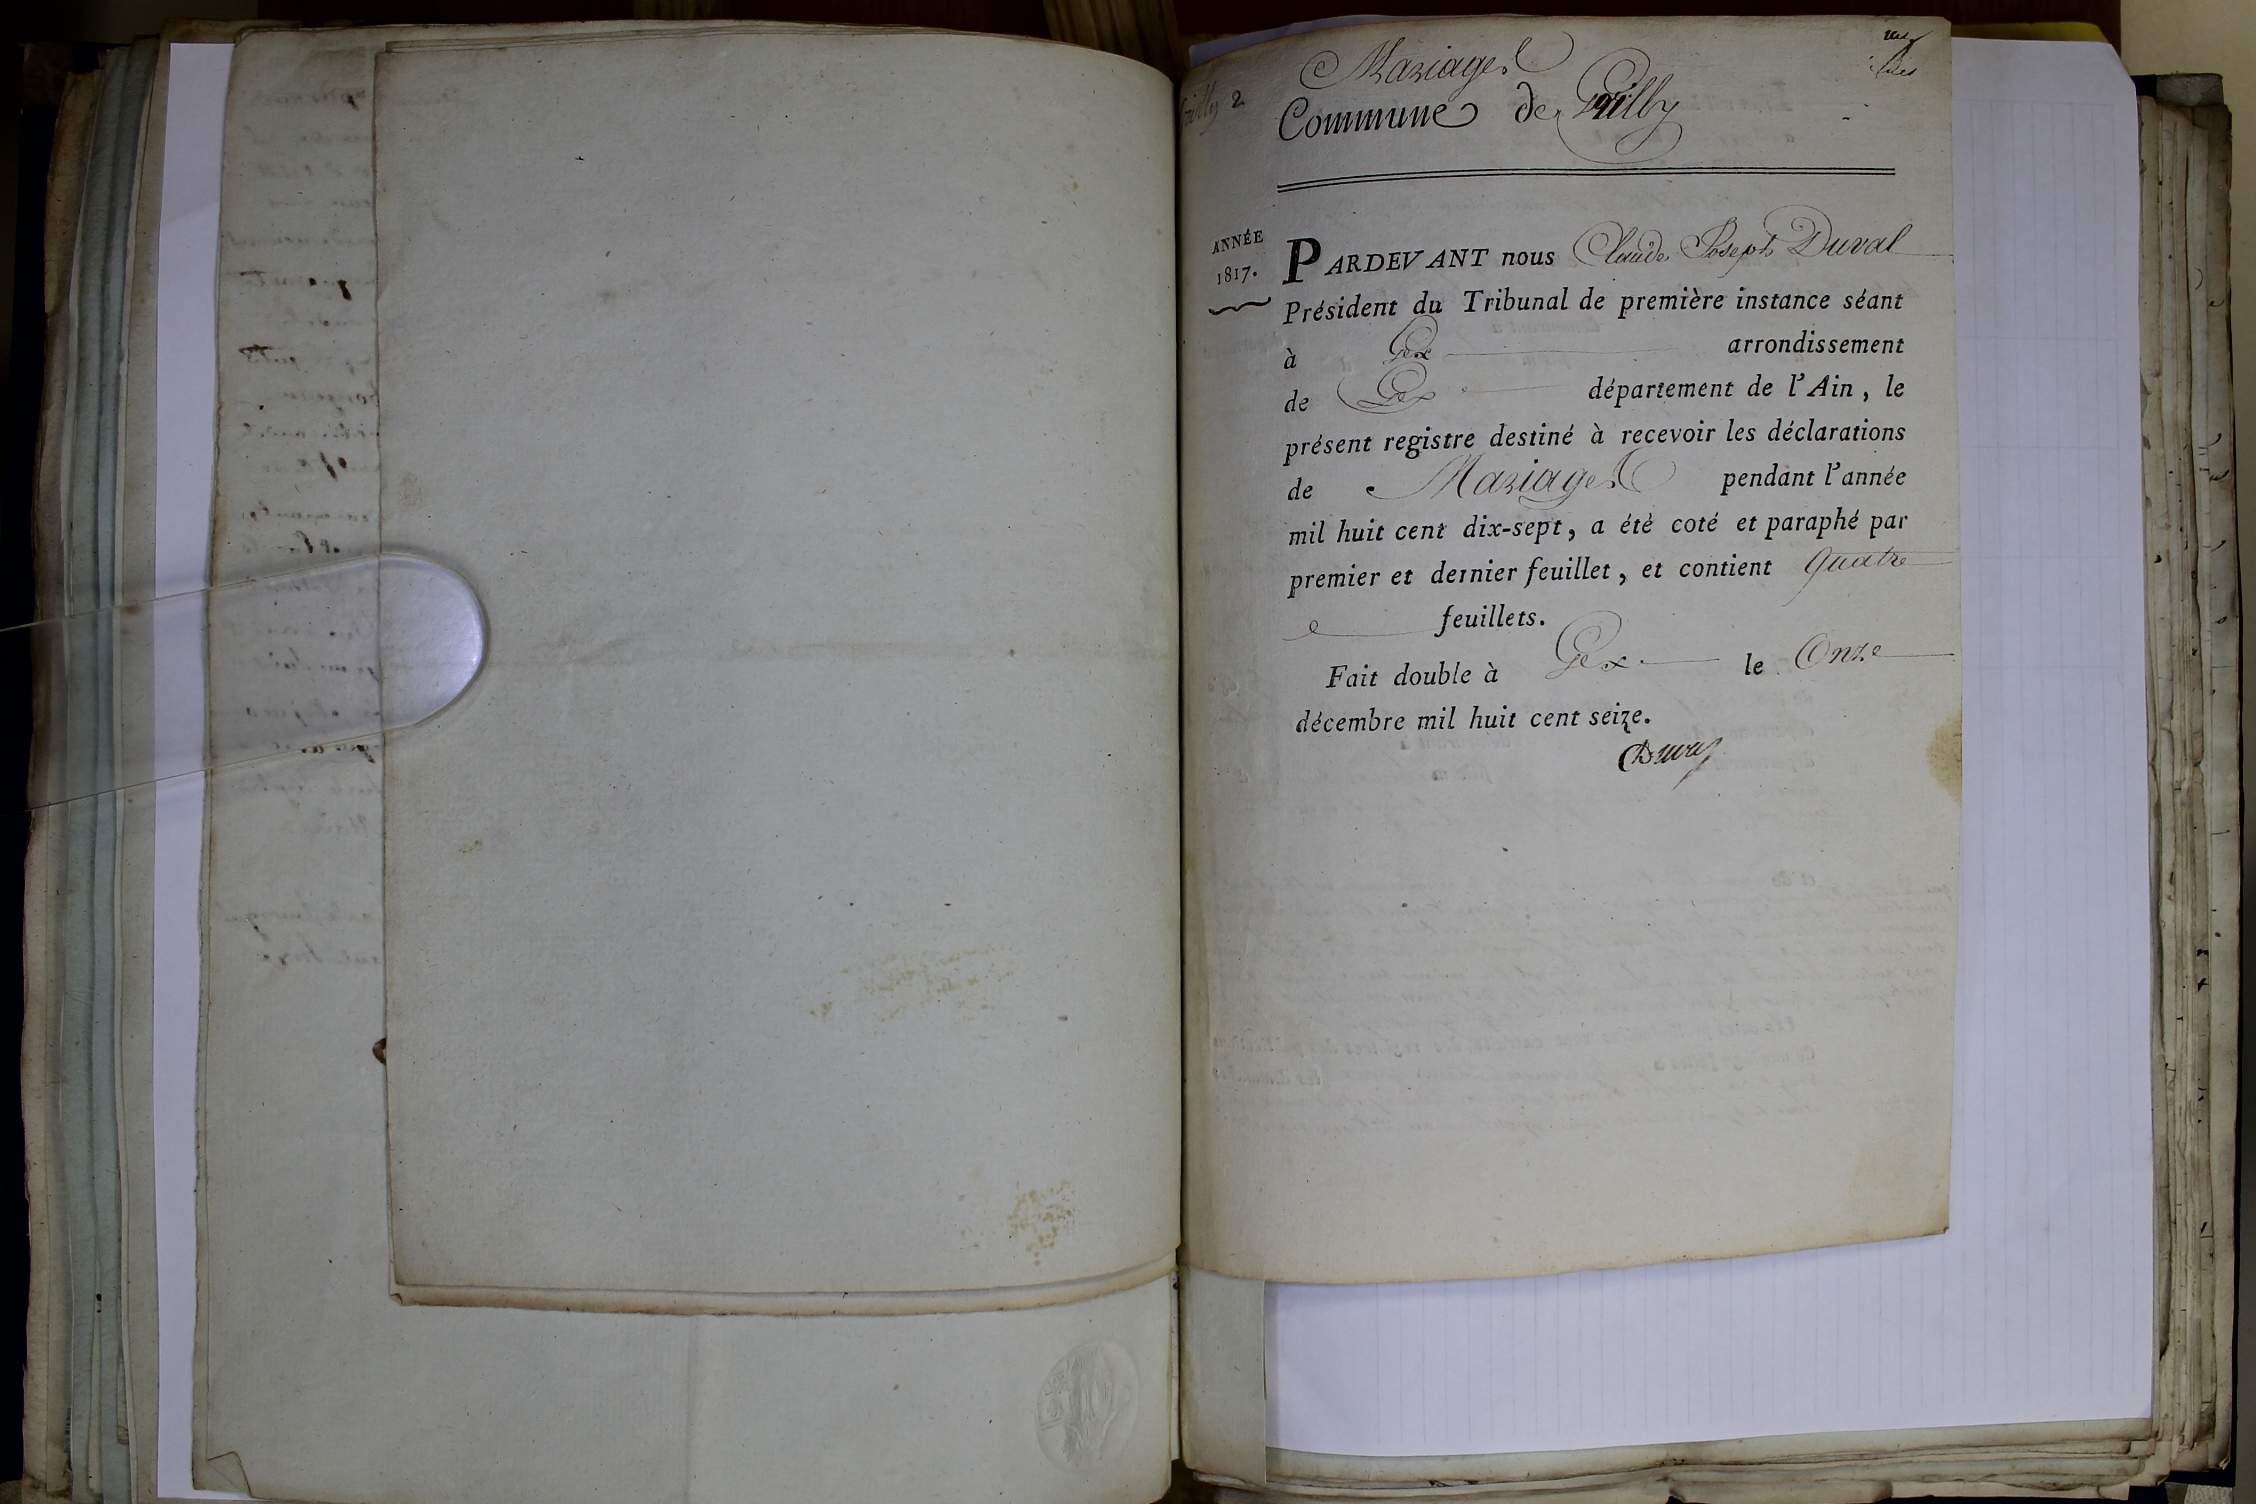 Mariages
Commune de Grilly
Grilly 2
ANNÉE
1817.
PARDEVANT nous Claude Joseph Duval
Président du Tribunal de première instance séant
à Gex arrondissement
de Gex département de l'Ain, le
présent registre destiné à recevoir les déclarations
de Mariages pendant l'année
mil huit cent dix-sept, a été coté et paraphé par
premier et dernier feuillet, et contient quatre
feuillets.
Fait double à Gex le Onze
décembre mil huit cent seize.
Duval